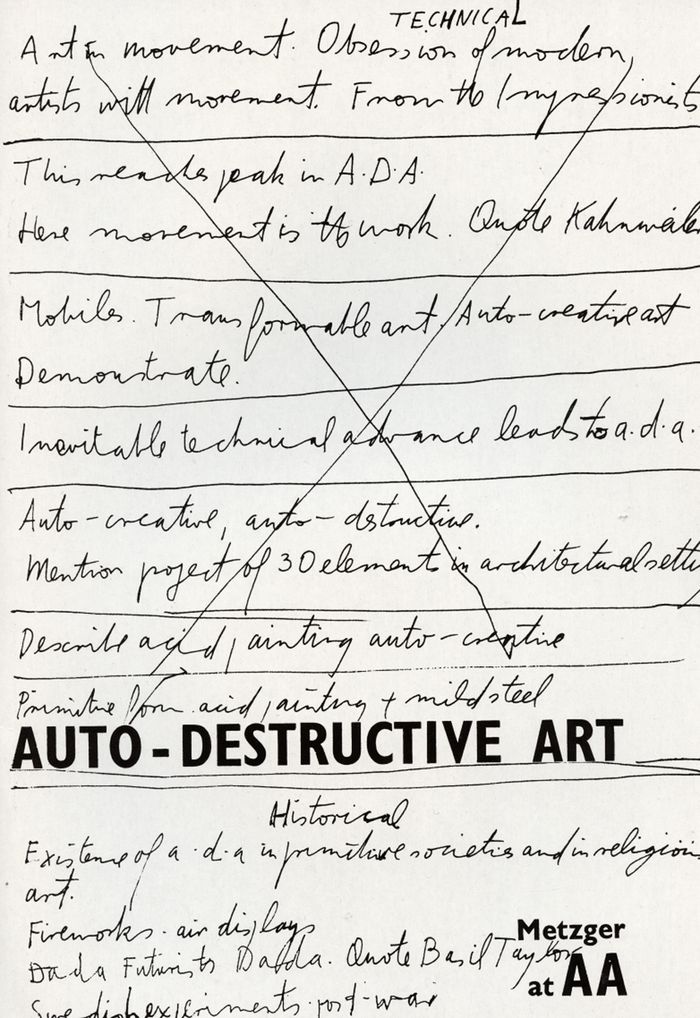 TECHNICAL
Art in movement. Obsession of modern,
artists with movement. From the Impressionists
This reaches peak in A.D.A.
Here movement is the work. Quote Kahnweiler
Mobiles. Transformable art. Auto-creative art
Demonstrate.
Inevitable technical advance leads to a.d.a.
Auto-creative, auto-destructive.
Mention project of 30 elements in architectural setti
Describe acid painting auto-creative
Primitive form. acid painting + mild steel
AUTO-DESTRUCTIVE ART
Historical
Existence of a.d.a in primitive societies and in religion
art.
Fireworks. air displays
Dada Futurists Dada. Quote Basil Taylor
Swedish experiments post-war
Metzger
at AA